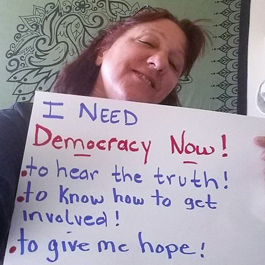 I NEED
Democracy Now!
.to hear the truth!
.to know how to get
involved!
.to give me hope!